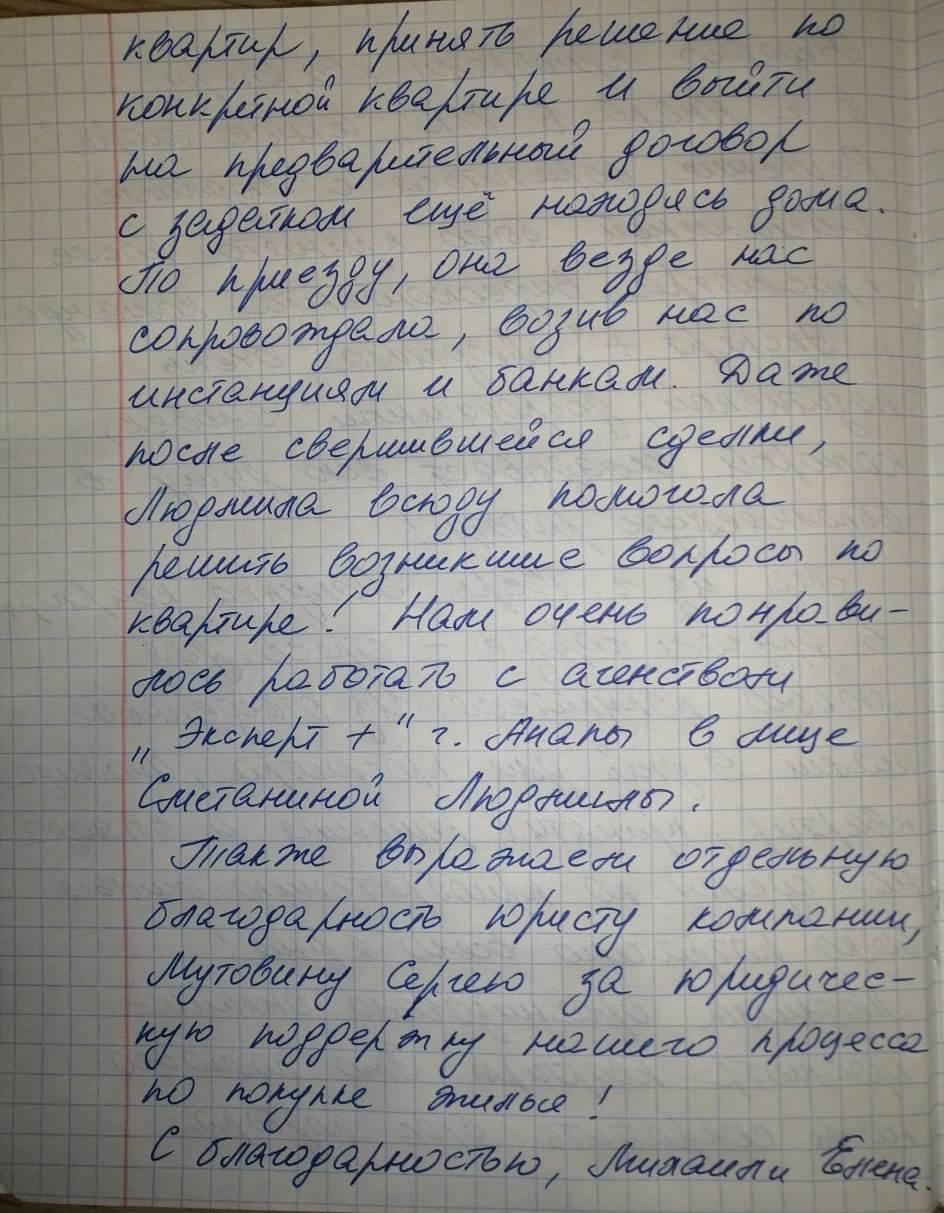 квартир, принять решение по
конкретной квартире и выйти
на предварительный договор
с задатком ещё находясь дома.
По приезду, она везде нас
сопровождала, возив нас по
инстанциям и банкам. Даже
после свершившейся сделки,
Людмила всюду помогала
решить возникшие вопросы по
квартире! Нам очень понрави-
лось работать с агенством
„Эксперт +" г. Анапы в лице
Сметаниной Людмилы.
Также выражаем отдельную
благодарность юристу компании,
Мутовину Сергею за юридичес-
кую поддержку нашего процесса
по покупке жилья!
С благодарностью, Михаил и Елена.